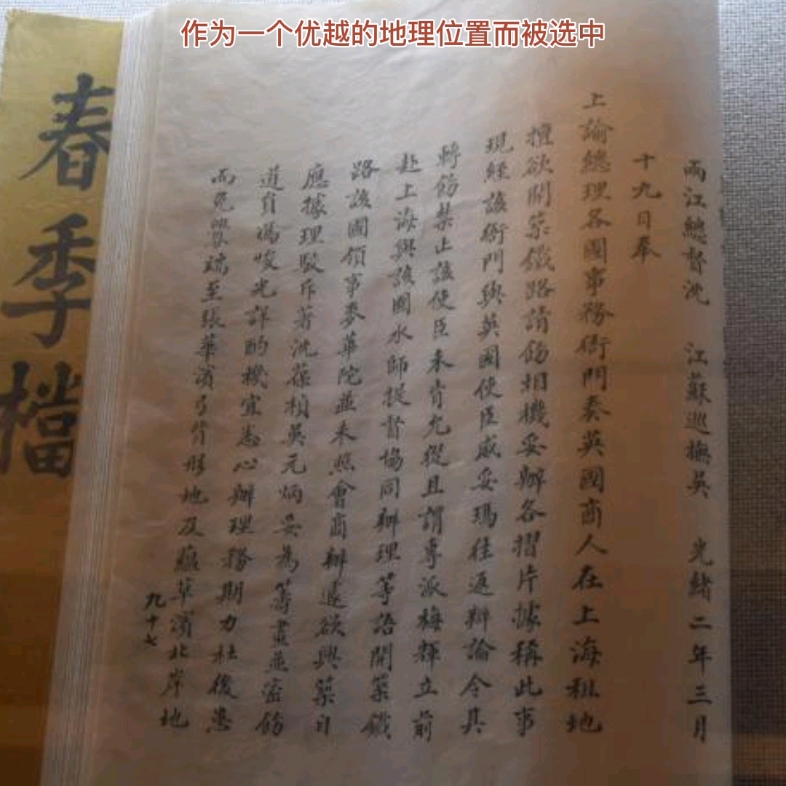 作为一个优越的地理位置而被选中
春季檔
兩江總督沈 江蘇巡撫吳 光緒二年三月
十九日奉
上諭總理各國事務衙門奏英國商人在上海租地
擅欲開築鐵路請飭相機妥辦各摺片據稱此事
現經該衙門與英國使臣威妥瑪往返辯論令其
轉飭禁止該使臣未肯允從且謂專派梅輝立前
赴上海與該國水師提督協同辦理等語開築鐵
路該國領事麥華陀並未照會商辦遽欲興築自
應據理駁斥著沈葆楨吳元炳妥為籌畫並密飭
道員馮焌光詳酌機宜悉心辦理務期力杜後患
而免釁端至張華濱弓背形地及蘊草濱北岸地
九十七